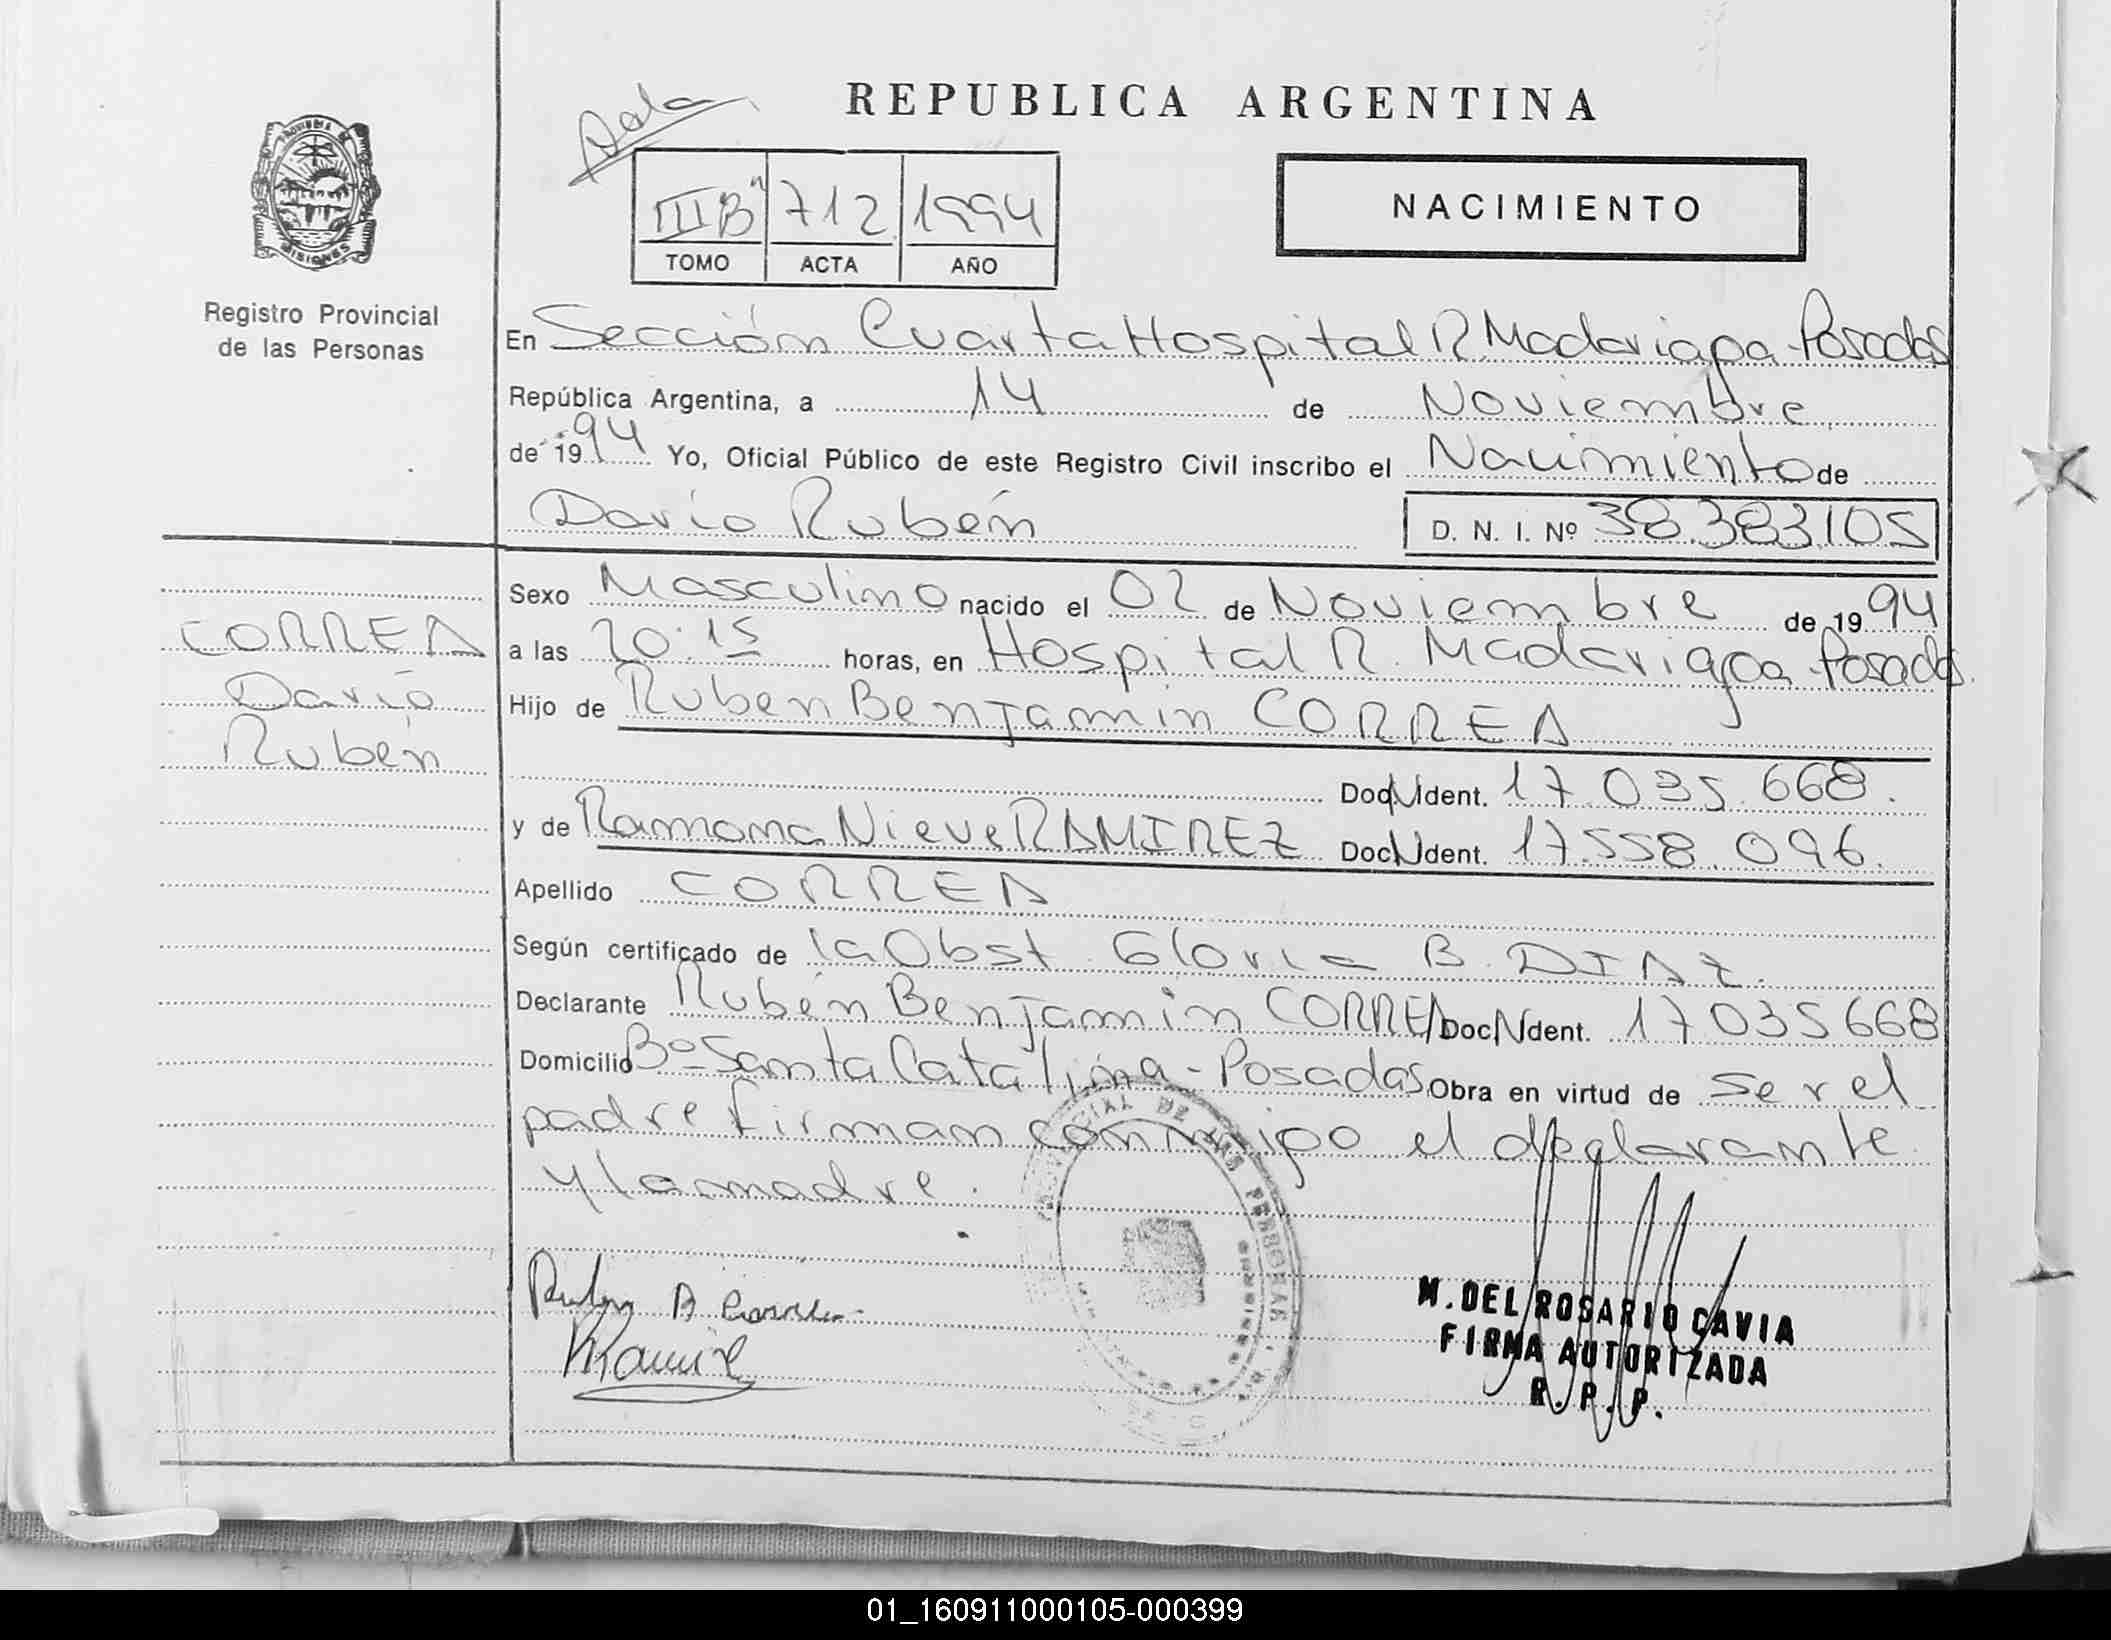 Sala
REPUBLICA ARGENTINA
PROVINCIA DE
MISIONES
Registro Provincial
de las Personas
III B" 712 1994
TOMO ACTA AÑO
NACIMIENTO
En Sección Cuarta Hospital R. Madariaga - Posadas
República Argentina, a 14 de Noviembre
de 1994 Yo, Oficial Público de este Registro Civil inscribo el Nacimiento de
Darío Rubén D. N. I. Nº 38.383.105
CORREA
Darío
Rubén
Sexo Masculino nacido el 02 de Noviembre de 1994
a las 20:15 horas, en Hospital R. Madariaga - Posadas
Hijo de Ruben Benjamin CORREA
Doc. Ident. 17.035.668.
y de Ramona Nieve RAMIREZ Doc. Ident. 17.558.096.
Apellido CORREA
Según certificado de la Obst. Gloria B. DIAZ.
Declarante Rubén Benjamin CORREA Doc. Ident. 17035668
Domicilio Bº Santa Catalina - Posadas Obra en virtud de ser el
padre firman conmigo el declarante
y la madre.
Ruben B Correa
M. DEL ROSARIO CAVIA
FIRMA AUTORIZADA
R. P. P.
01_160911000105-000399